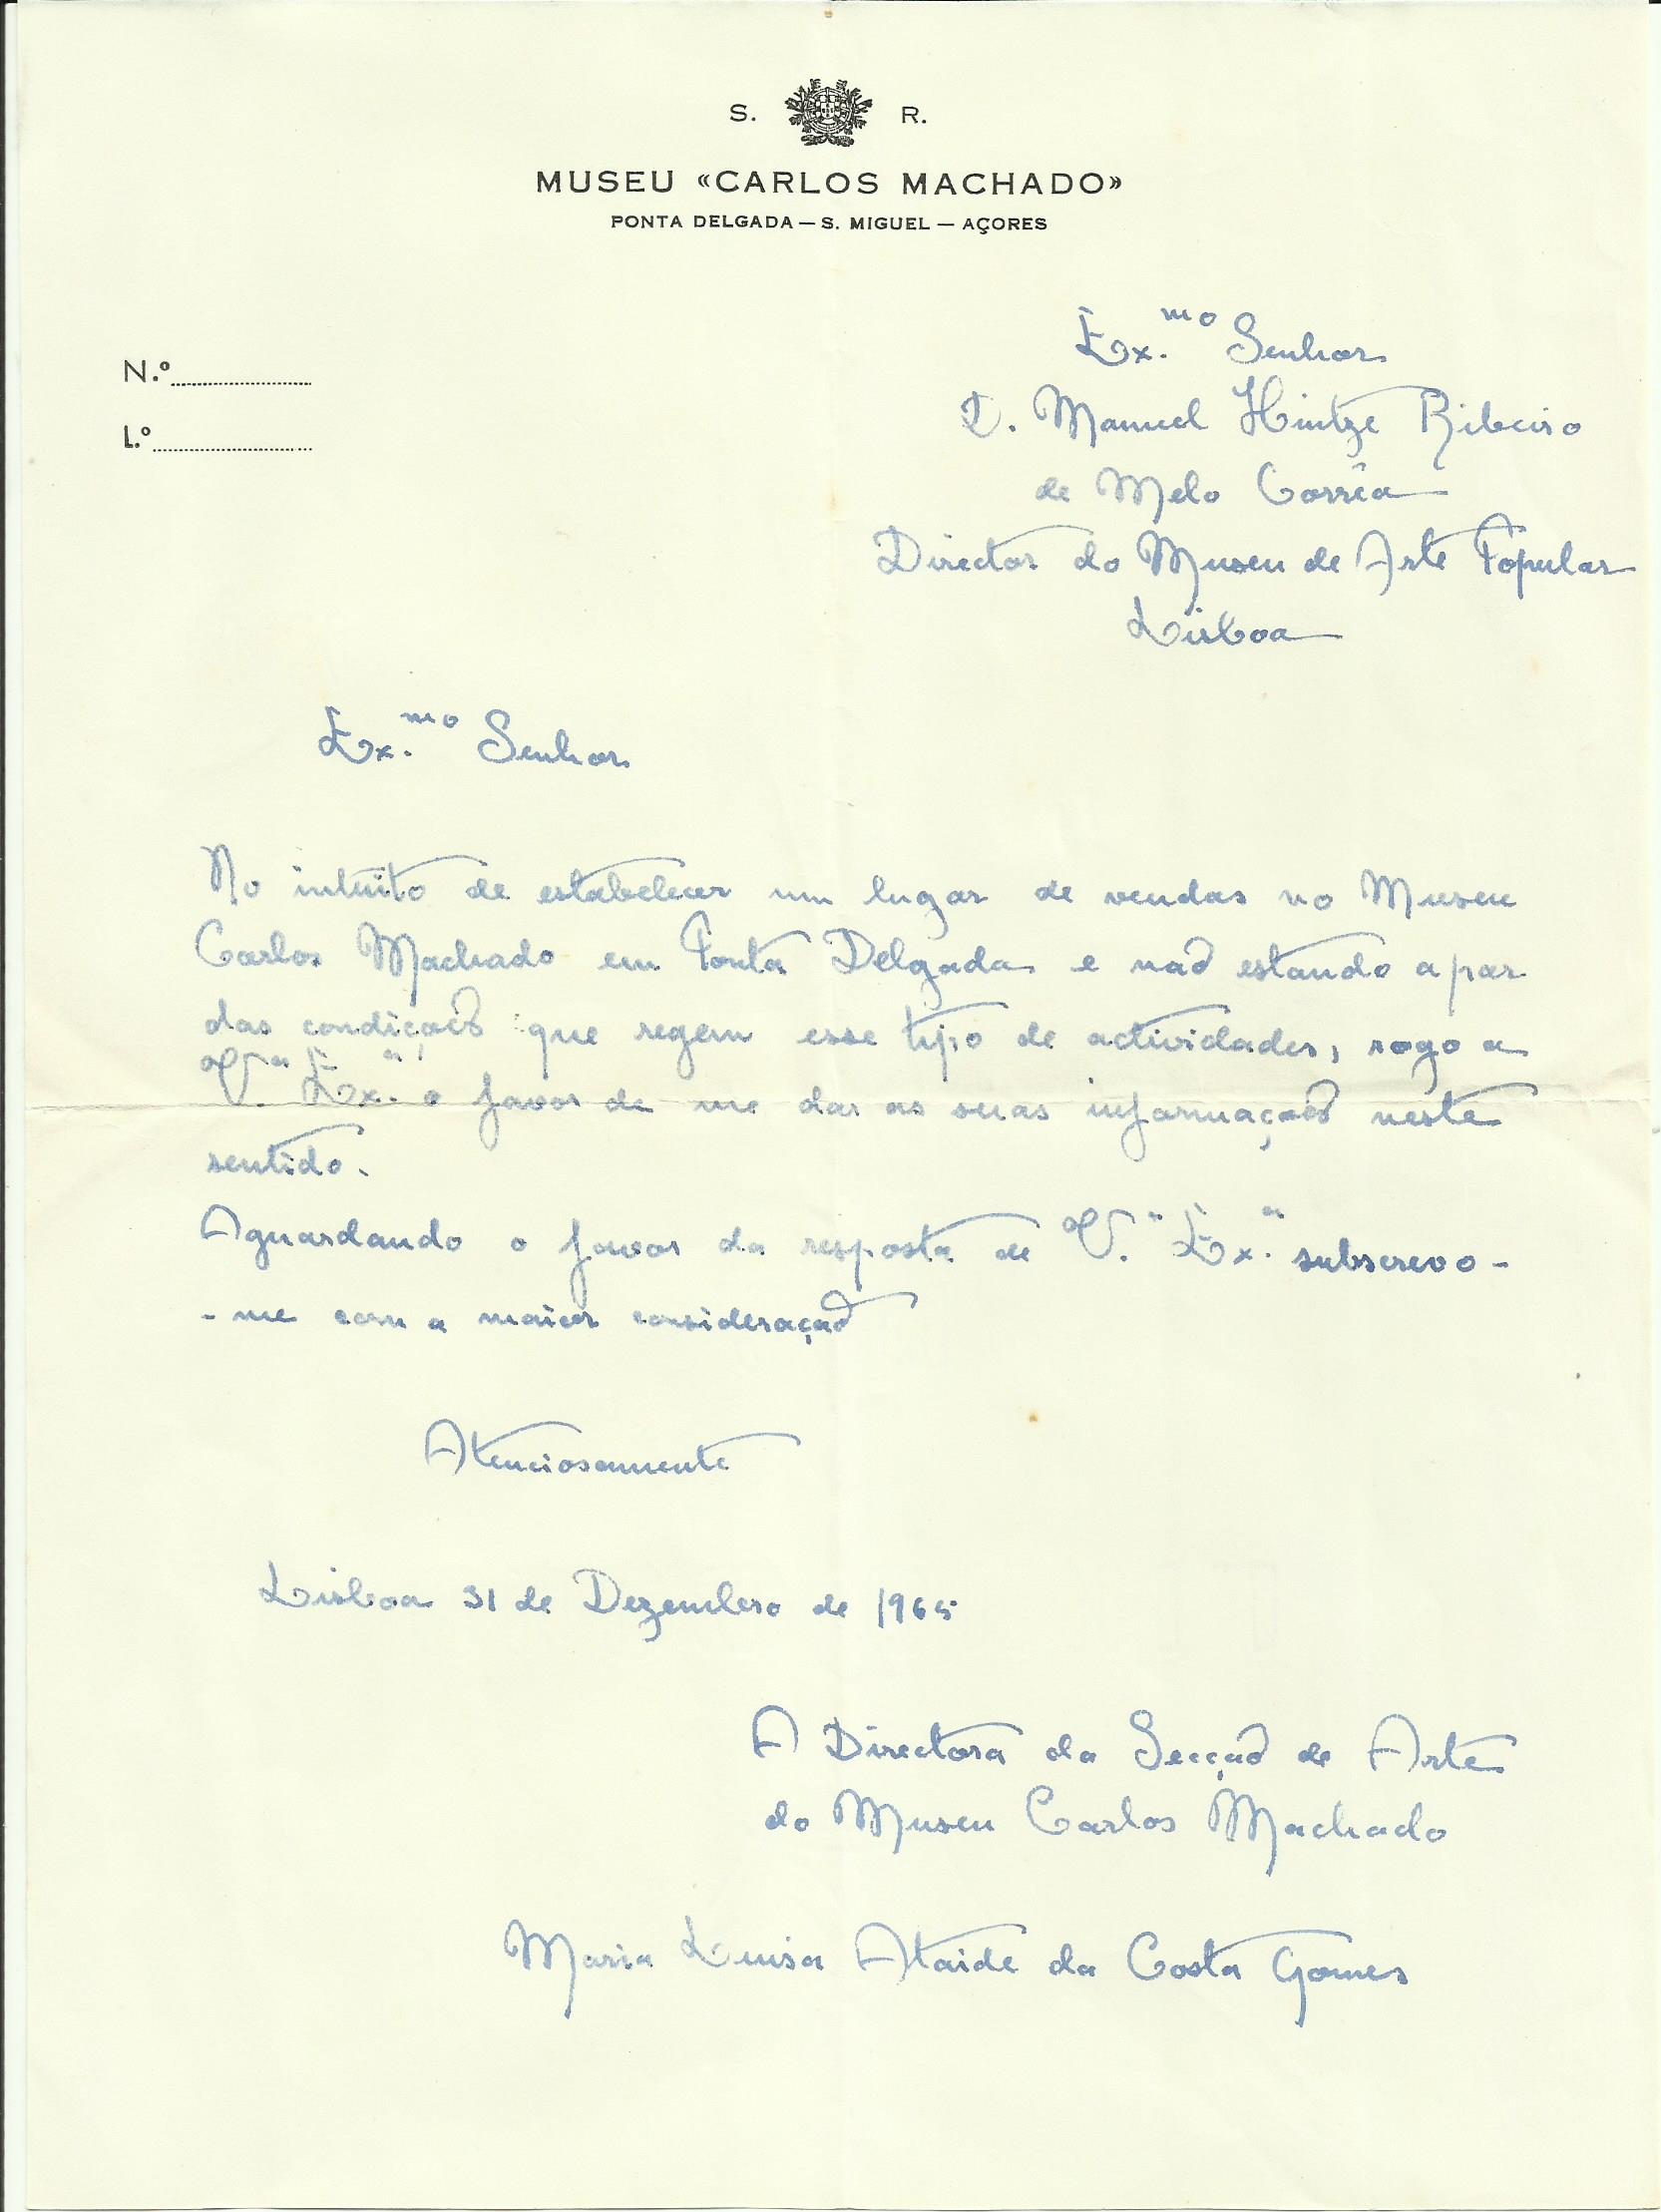 S. R.
MUSEU «CARLOS MACHADO»
PONTA DELGADA — S. MIGUEL — AÇORES
N.º
L.º
Ex.mo Senhor
D. Manuel Hintze Ribeiro
de Melo Corrêa
Director do Museu de Arte Popular
Lisboa
Ex.mo Senhor
No intuito de estabelecer um lugar de vendas no Museu
Carlos Machado em Ponta Delgada e não estando a par
das condições que regem esse tipo de actividades, rogo a
V.a Ex.a o favor de me dar as suas informações neste
sentido.
Aguardando o favor da resposta de V.a Ex.a subscrevo-
-me com a maior consideração
Atenciosamente
Lisboa 31 de Dezembro de 1965
A Directora da Secção de Arte
do Museu Carlos Machado
Maria Luisa Ataide da Costa Gomes